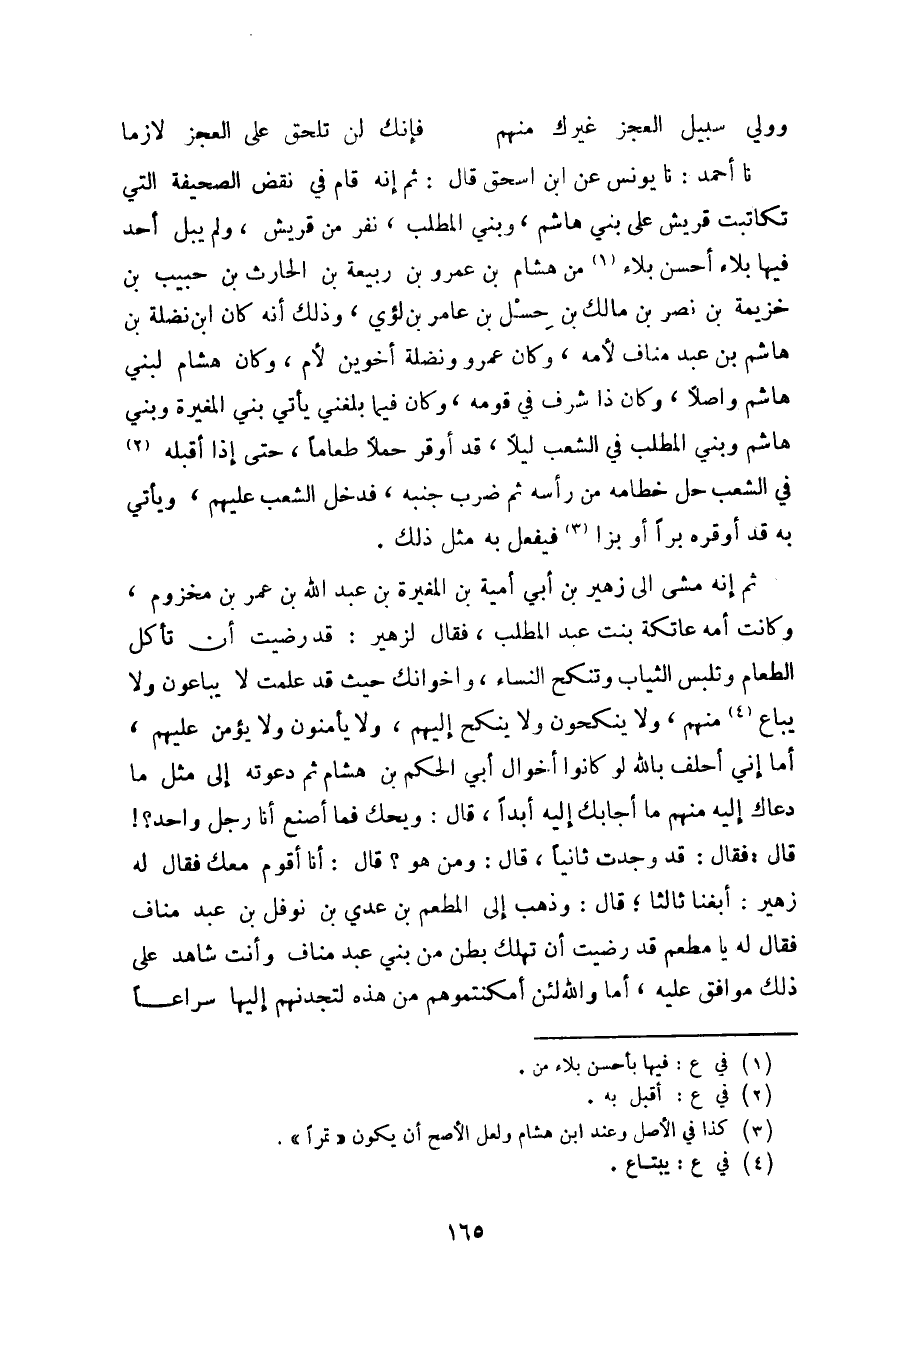 وولي سبيل العجز غيرك منهم فإنك لن تلحق على العجز لازما
نا أحمد : نا يونس عن ابن اسحق قال : ثم إنه قام في نقض الصحيفة التي
تكاتبت قريش على بني هاشم ، وبني المطلب ، نفر من قريش ، ولم يبل أحد
فيها بلاء أحسن بلاء (١) من هشام بن عمرو بن ربيعة بن الحارث بن حبيب بن
خزيمة بن نصر بن مالك بن حِسْل بن عامر بن لؤي ، وذلك أنه كان ابن نضلة بن
هاشم بن عبد مناف لأمه ، وكان عمرو ونضلة أخوين لأم ، وكان هشام لبني
هاشم واصلاً ، وكان ذا شرف في قومه ، وكان فيما بلغني يأتي بني المغيرة وبني
هاشم وبني المطلب في الشعب ليلاً ، قد أوقر حملاً طعاماً ، حتى إذا أقبله (٢)
في الشعب حل خطامه من رأسه ثم ضرب جنبه ، فدخل الشعب عليهم ، ويأتي
به قد أوقره براً أو بزا (٣) فيفعل به مثل ذلك .
ثم إنه مشى الى زهير بن أبي أمية بن المغيرة بن عبد الله بن عمر بن مخزوم ،
وكانت أمه عاتكة بنت عبد المطلب ، فقال لزهير : قد رضيت أن تأكل
الطعام وتلبس الثياب وتنكح النساء ، واخوانك حيث قد علمت لا يباعون ولا
يباع (٤) منهم ، ولا ينكحون ولا ينكح إليهم ، ولا يأمنون ولا يؤمن عليهم ،
أما إني أحلف بالله لو كانوا أخوال أبي الحكم بن هشام ثم دعوته إلى مثل ما
دعاك إليه منهم ما أجابك إليه أبداً ، قال : ويحك فما أصنع أنا رجل واحد؟!
قال :فقال : قد وجدت ثانياً ، قال : ومن هو ؟ قال : أنا أقوم معك فقال له
زهير : أبغنا ثالثا ؛ قال : وذهب إلى المطعم بن عدي بن نوفل بن عبد مناف
فقال له يا مطعم قد رضيت أن تهلك بطن من بني عبد مناف وأنت شاهد على
ذلك موافق عليه ، أما والله لئن أمكنتموهم من هذه لتجدنهم إليها سراعـــاً
(١) في ع : فيها بأحسن بلاء من .
(٢) في ع : أقبل به .
(٣) كذا في الأصل وعند ابن هشام ولعل الأصح أن يكون « تمرأ » .
(٤) في ع : يبتـاع .
١٦٥